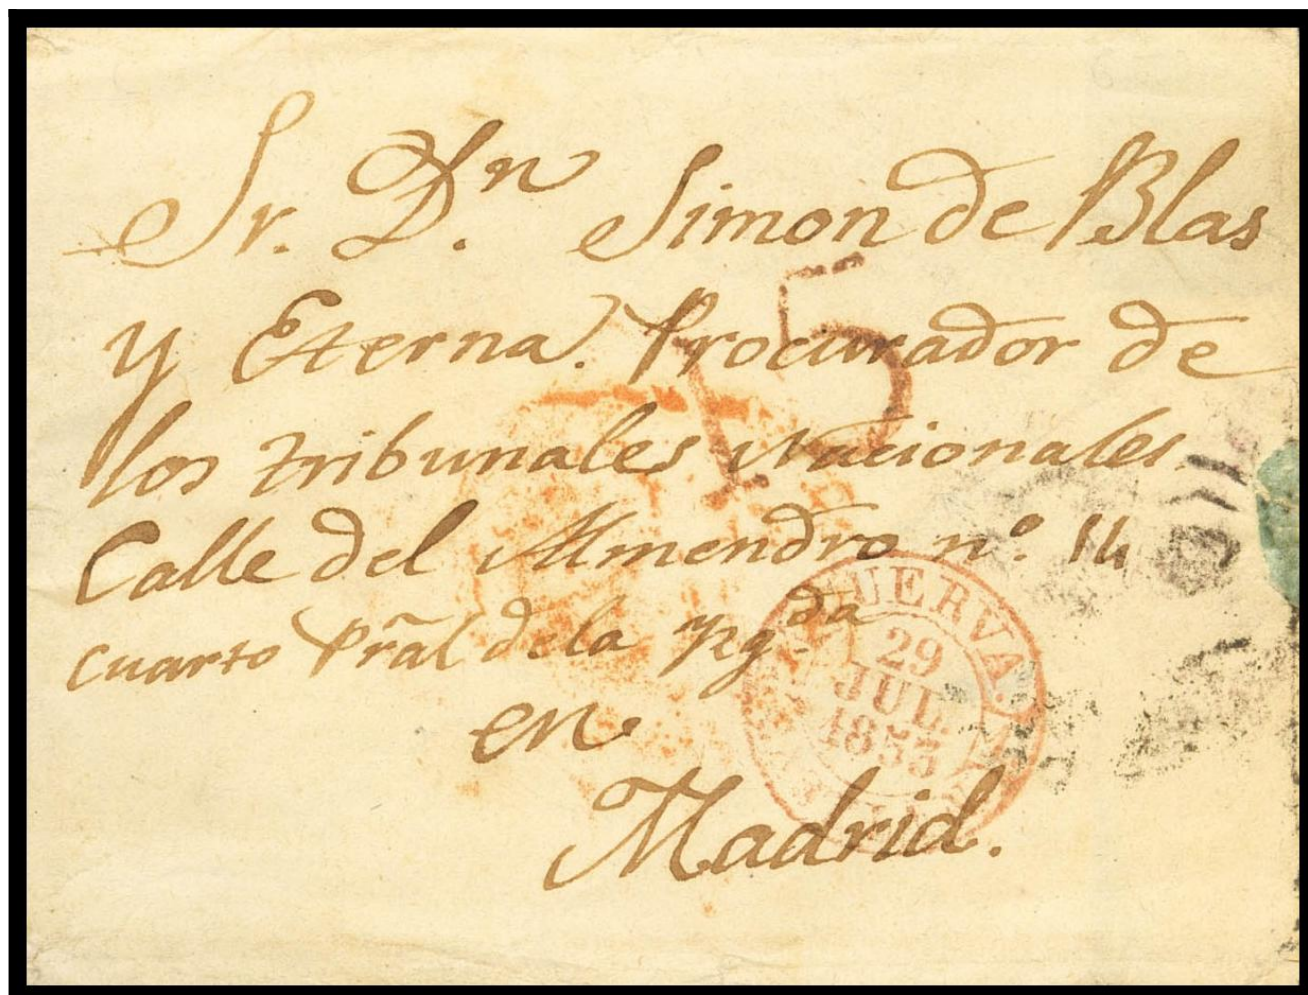 Sr. Dn. Simon de Blas
y Eterna. Procurador de
los tribunales Nacionales.
Calle del Almendro nº. 14
cuarto Pñal de la yzqda
en
Madrid.
15
29
JUL
1855